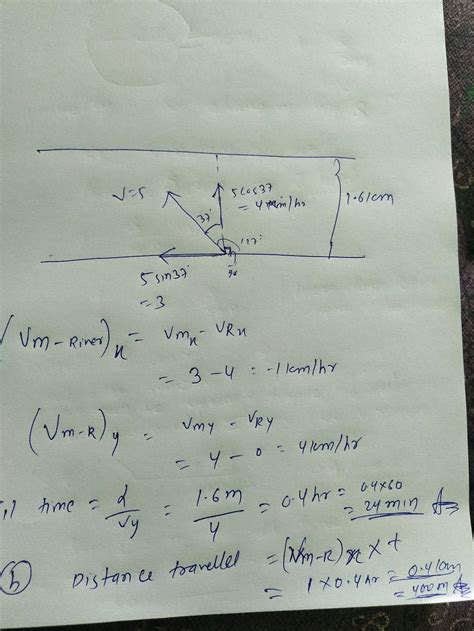 V=5
5cos37°
= 4 km/hr
37°
127°
90
1.6km
5sin37°
= 3
(Vm-River)x = Vmx - VRx
= 3-4 = -1 km/hr
(Vm-R)y = Vmy - VRy
= 4 - 0 = 4km/hr
time = d/Vy = 1.6m/4 = 0.4hr = 0.4x60
= 24 min
(b) Distance travelled = (Vm-R)x x t
= 1 x 0.4hr = 0.4km
= 400m